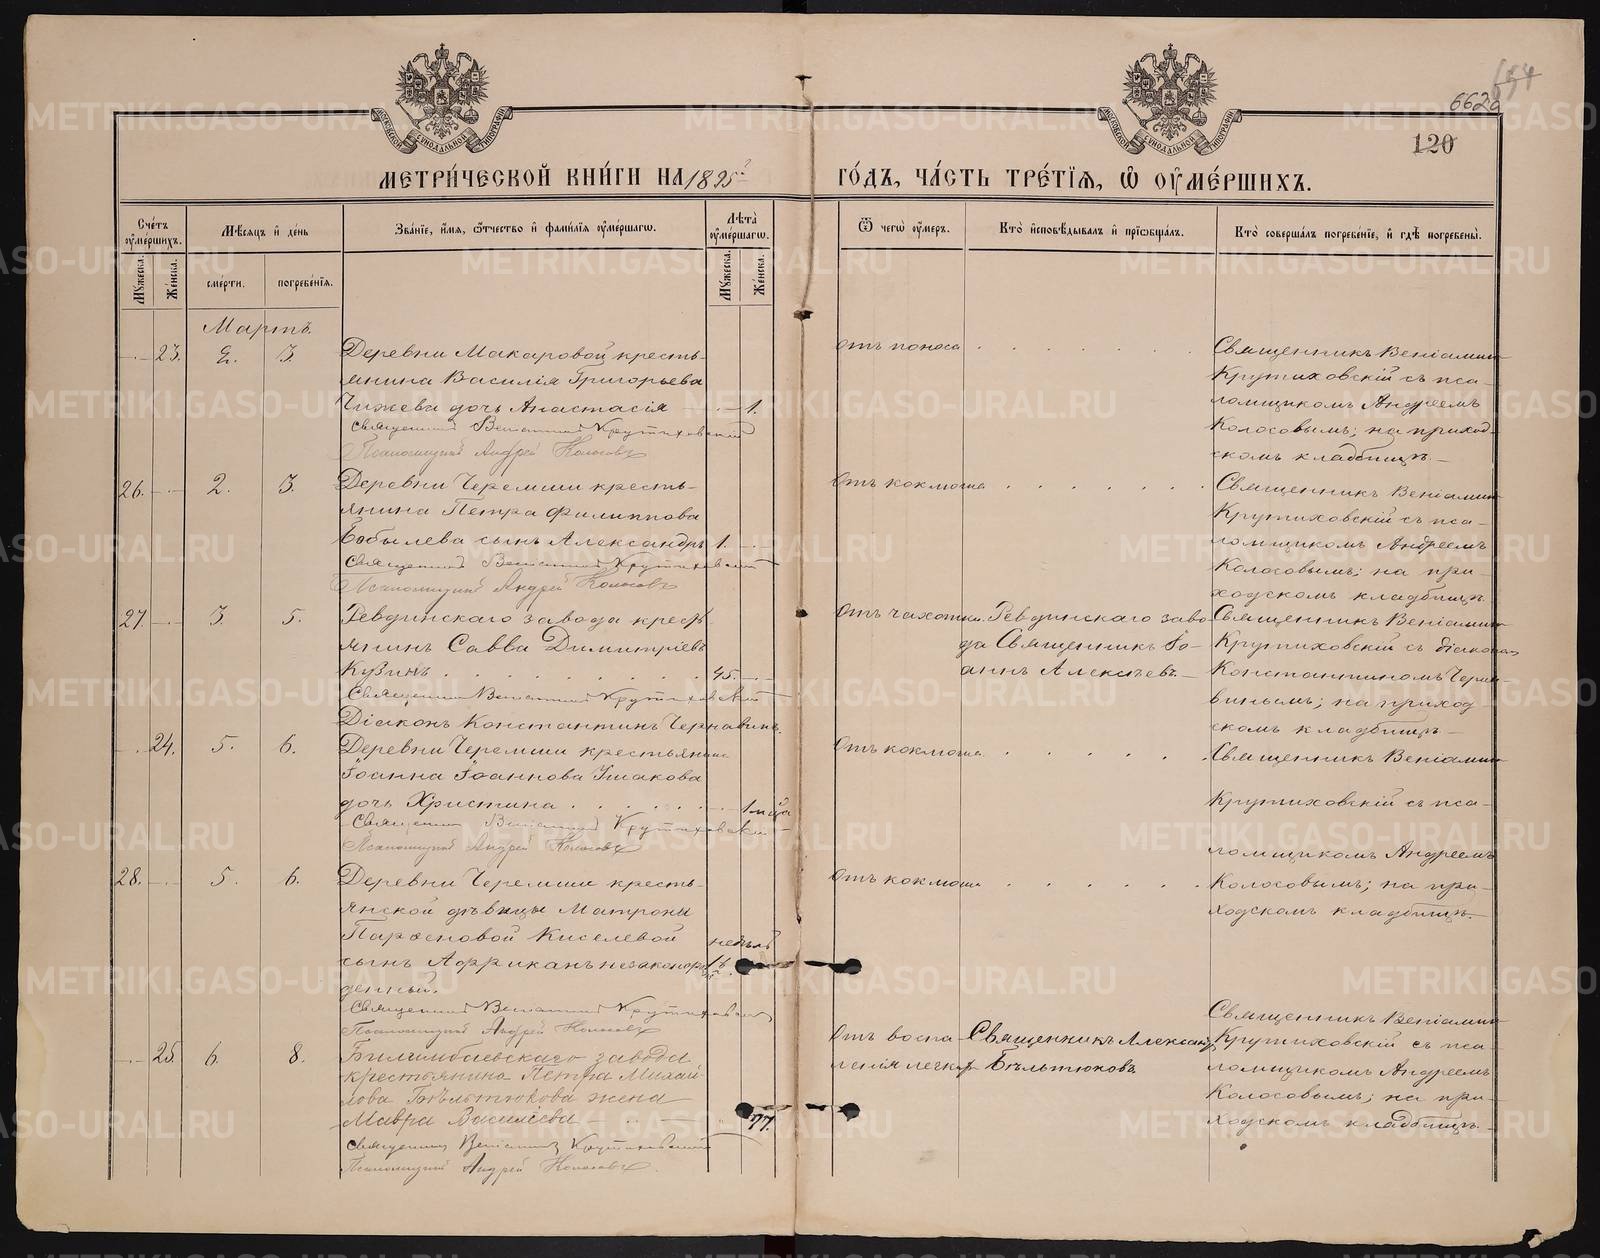 654
662
120
МОСКОВСКОЙ СѴНОДАЛЬНОЙ ТИПОГРАФІИ
МОСКОВСКОЙ СѴНОДАЛЬНОЙ ТИПОГРАФІИ
МЕТРИ́ЧЕСКОЙ КНИ́ГИ НА 1895 ГО́ДЪ, ЧА́СТЬ ТРЕ́ТІѦ, Ѽ ОУ҆МЕ́РШИХЪ.
Сче́тъ оу҆ме́ршихъ.
Мѣ́сѧцъ и҆ де́нь
Зва́нїе, и҆́мѧ, ѻ҆́тчество и҆ фами́лїѧ оу҆ме́ршагѡ.
Лѣта̀ оу҆ме́ршагѡ.
Ѿ чегѡ̀ оу҆́меръ.
Кто̀ и҆сповѣ́дывалъ и҆ прїѡбща́лъ.
Кто̀ соверша́лъ погребе́нїе, и҆ гдѣ̀ погребены̀.
Мꙋ́жеска.
Же́нска.
сме́рти.
погребе́нїѧ.
Мꙋ́жеска.
Же́нска.
Мартъ.
23. 2. 3. Деревни Макаровой кресть-
янина Василія Григорьева
Чижева дочь Анастасія 1.
Священникъ Веніаминъ Крутиховскій
Псаломщикъ Андрей Колосовъ
отъ поноса
Священникъ Веніамин
Крутиховскій съ пса-
ломщикомъ Андреемъ
Колосовымъ; на приход-
скомъ кладбищѣ.
26. 2. 3. Деревни Черемши кресть-
янина Петра Филиппова
Бобылева сынъ Александръ 1.
Священникъ Веніаминъ Крутиховскій
Псаломщикъ Андрей Колосовъ
Отъ коклюша
Священникъ Веніамин
Крутиховскій съ пса-
ломщикомъ Андреемъ
Колосовымъ; на при-
ходскомъ кладбищѣ.
27. 3 5. Ревдинскаго завода крест
янинъ Савва Димитріевъ
Кузинъ 45.
Священникъ Веніаминъ Крутиховскій
Діаконъ Константинъ Чернавинъ.
Отъ чахотки.
Ревдинскаго заво-
да Священникъ Іо-
аннъ Алексѣевъ.
Священникъ Веніамин
Крутиховскій съ діаконом
Константиномъ Черна-
винымъ; на приход
скомъ кладбищѣ
24. 5. 6. Деревни Черемши крестьянина
Іоанна Іоаннова Ушакова
дочь Христина 1 м-ца
Священникъ Веніаминъ Крутиховскій
Псаломщикъ Андрей Колосовъ
Отъ коклюша
Священникъ Веніамин
Крутиховскій съ пса-
ломщикомъ Андреемъ
Колосовымъ; на при-
ходскомъ кладбищѣ.
28. 5. 6. Деревни Черемши кресть-
янской дѣвицы Матроны
Парѳеновой Киселевой
сынъ Африканъ незаконорож
денный.
недѣль
Священникъ Веніаминъ Крутиховскій
Псаломщикъ Андрей Колосовъ
Отъ коклюша
25. 6. 8. Билимбаевскаго завода
крестьянина Петра Михай-
лова Бѣльтюкова жена
Мавра Васильева
Священникъ Веніаминъ Крутиховскій
Псаломщикъ Андрей Колосовъ.
Отъ воспа-
ленія легких
Священникъ Александръ
Бѣльтюковъ
Священникъ Веніамин
Крутиховскій съ пса-
ломщикомъ Андреемъ
Колосовымъ; на при-
ходскомъ кладбищѣ.
METRIKI.GASO-URAL.RU